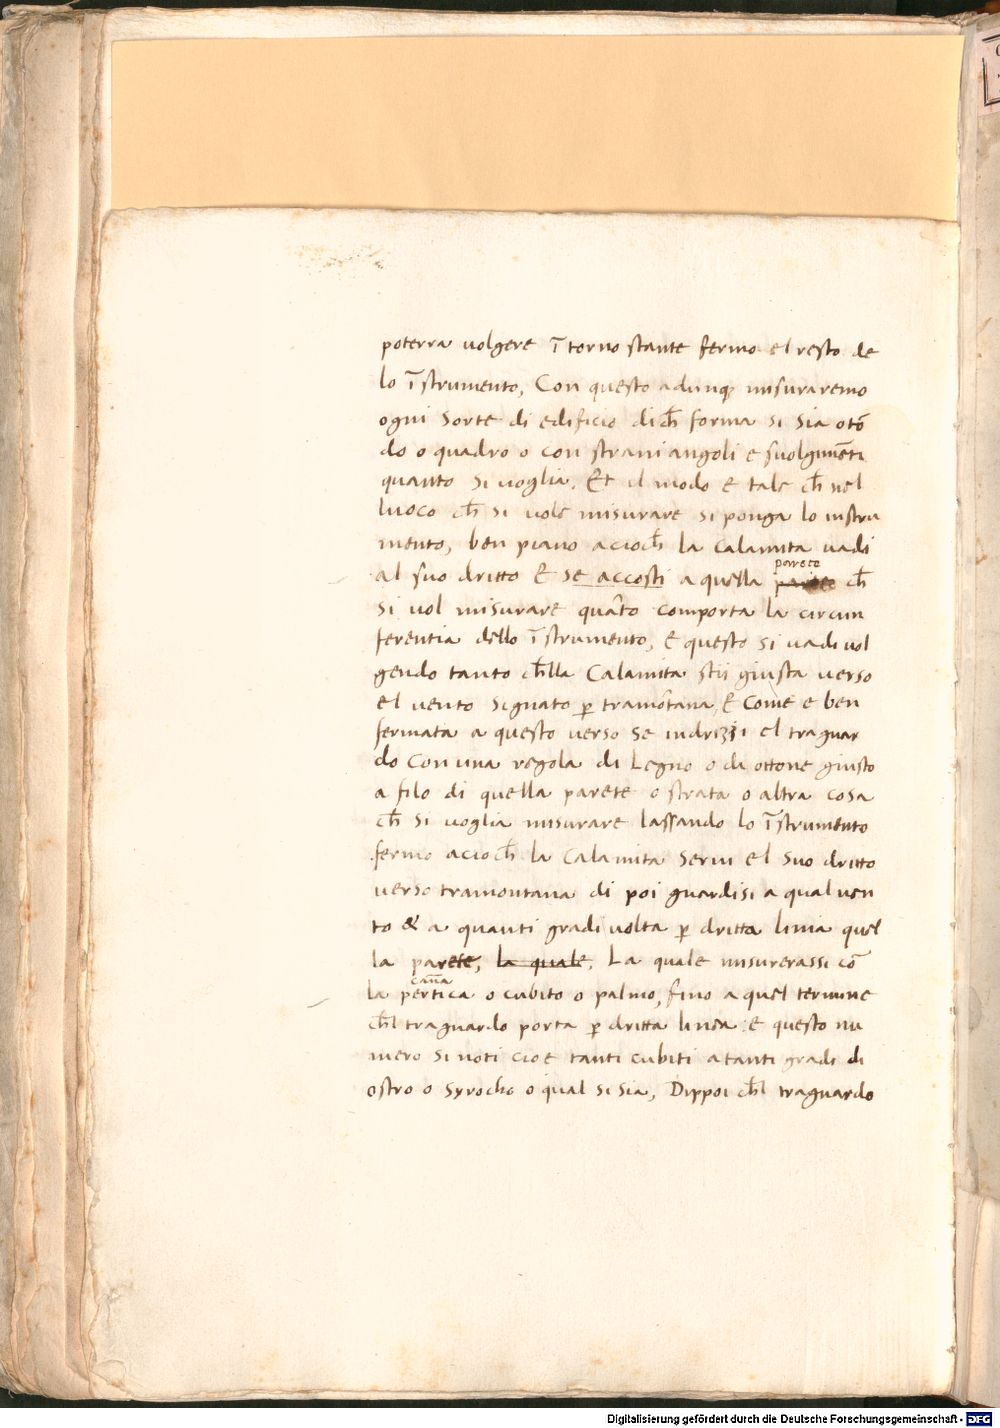 poterra volgere ĩtorno stante fermo el resto de
lo ĩstrumento, Con questo adunqȝ misuraremo
ogni sorte di edificio di ch̃ forma si sia o tõ
do o quadro o con strani angoli e svolgimẽti
quanto si voglia. Et il modo e tale ch̃ nel
luoco ch̃ si vole misurare si ponga lo instru
mento, ben piano acioch̃ la calamita vadi
al suo dritto & se accosti a quella parete ch̃
si vol misurare quãto comporta la circun
ferentia dello ĩstrumento, e questo si vadi vol
gendo tanto ch̃lla Calamita stii giusta verso
el vento signato ꝑ tramõtana, & Come e ben
fermata a questo verso se indrizzi el traguar
do Con una regola di Legno o di ottone giusto
a filo di quella parete o strata o altra cosa
ch̃ si voglia misurare lassando lo ĩstrumento
fermo acioch̃ la Calamita servi el suo dritto
verso tramontana di poi guardisi a qual ven
to & a quanti gradi volta ꝑ dritta linia quel
la parete, la quale, La quale misurerassi cõ
canna
la pertica o cubito o palmo, fino a quel termine
ch̃l traguardo porta ꝑ dritta linea: e questo nu
mero si noti cioe tanti cubiti a tanti gradi di
ostro o Syrocho o qual si sia, Dippoi ch̃l traguardo
Digitalisierung gefördert durch die Deutsche Forschungsgemeinschaft - DFG